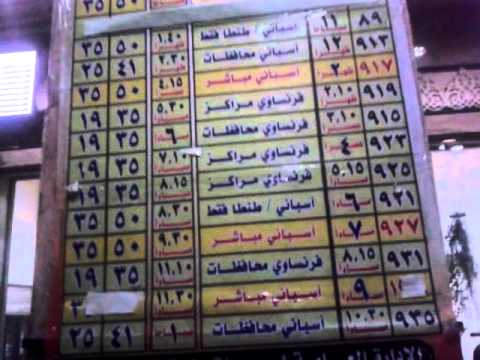 ٨٩ ١١ أسباني / طنطا فقط ١.٤٠ ظهرا ٥٠ ٣٥
٩١٣ ١٢ ظهرا أسباني محافظات ٣.٣٠ ظهرا ٤١ ٢٥
٩١٧ ٢ ظهرا أسباني مباشر ٤.١٥ ٥٠ ٣٥
٩١٩ ٢.١٠ ظهرا فرنساوي مراكز ٥.٣٠ ٣٥ ١٩
٩١٥ ٣.١٠ فرنساوي محافظات ٦ ٣٥ ١٩
٩٢٣ ٤ فرنساوي مراكز ٧.١٠ ٣٥ ١٩
٩٢٥ ٥.١٥ فرنساوي مراكز ٨.١٥ ٣٥ ١٩
٩٢١ ٦ أسباني / طنطا فقط ٨.٣٠ ٥٠ ٣٥
٩٢٧ ٧ أسباني مباشر ٩.٣٠ ٥٠ ٣٥
٩٣١ ٨.١٥ فرنساوي محافظات ١١.١٠ ٣٥ ١٩
٩ أسباني مباشر ١١.٣٠
٩٣٥ ١٠.٣٠ أسباني محافظات ١ ٤١ ٢٥